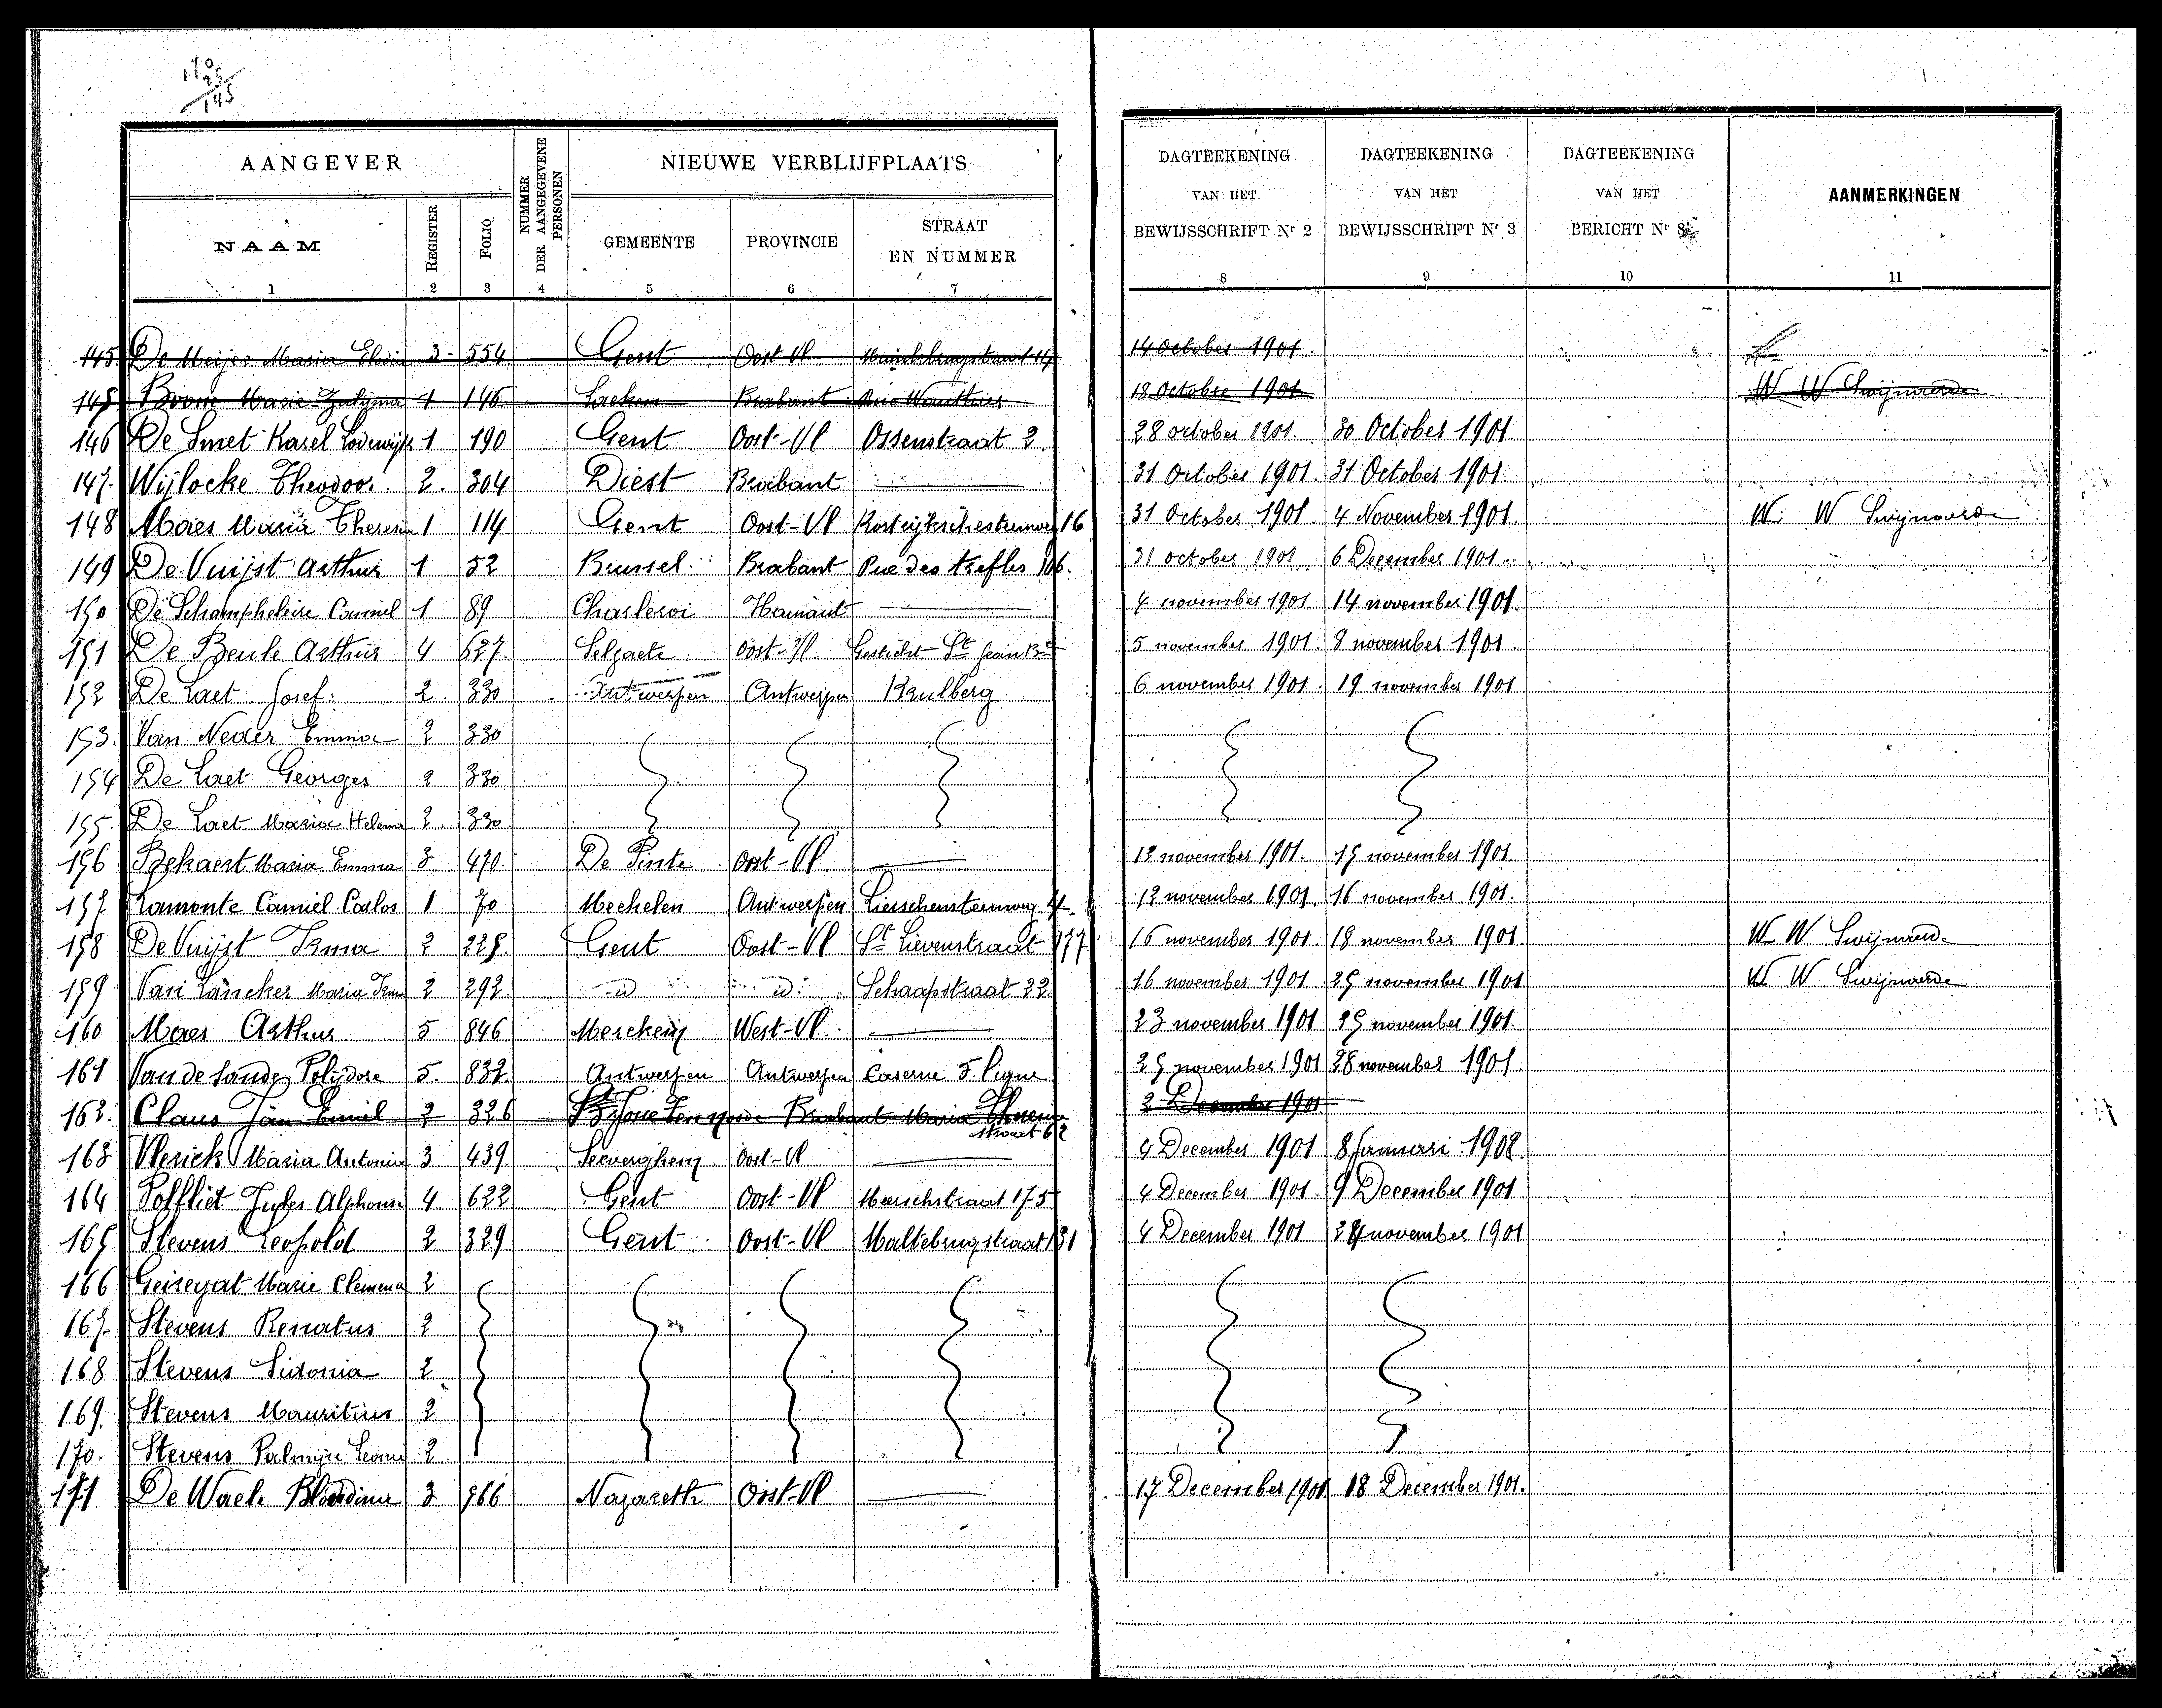 170
25
145
AANGEVER
NUMMER DER AANGEGEVENE PERSONEN
NIEUWE VERBLIJFPLAATS
DAGTEEKENING VAN HET BEWIJSSCHRIFT Nr 2
DAGTEEKENING VAN HET BEWIJSSCHRIFT Nr 3
DAGTEEKENING VAN HET BERICHT Nr 8
AANMERKINGEN
NAAM
REGISTER
FOLIO
GEMEENTE
PROVINCIE
STRAAT EN NUMMER
1 2 3 4 5 6 7 8 9 10 11
145. De Meijer Maria 3. 554 Gent Oost Vl 14 October 1901
145 Marie 1 146 Laeken Brabant Rue Wauthier 18 Octobre 1901 W W Swijnaerde
146 De Smet Karel Lodewijk 1 190 Gent Oost-Vl Ossenstraat 2. 28 october 1901. 30 October 1901.
147. Wijlocke Theodoor. 2. 304 Diest Brabant — 31 October 1901. 31 October 1901.
148 Maes Maria Theresia 1 114 Gent Oost-Vl Kortrijkschesteenweg 16 31 October 1901. 4 November 1901. W. W Swijnaerde
149 De Vuijst Arthur 1 52 Brussel Brabant Rue des trefles 106. 31 october 1901 6 December 1901.
150 De Schampheleire Camiel 1 89 Charleroi Hainaut — 4 november 1901 14 november 1901.
151 De Beule Arthur 4 627. Selzaete Oost-Vl. Gesticht St Jean Bte 5 november 1901 8 november 1901.
152 De Laet Josef. 2. 330 Antwerpen Antwerpen Kaulberg 6 november 1901. 19 november 1901
153. Van Neder Emma 2 330
154 De Laet Georges 2 330
155. De Laet Maria Helena 2. 330.
156 Bekaert Maria Emma 3 470. De Pinte Oost-Vl — 12 november 1901. 15 november 1901.
157 Lamonte Camiel Carlos 1 70 Mechelen Antwerpen Lierschensteenweg 4. 12 november 1901. 16 november 1901.
158 De Vuijst Irma 2 225. Gent Oost-Vl St Lievenstraat 177 16 november 1901 18 november 1901. W W Swijnaerde
159 Van Lancker Maria Irma 2 292. id id. Schaapstraat 22 16 november 1901 25 november 1901 W W Swijnaerde
160 Maes Arthur. 5 846 Merckem West-Vl. — 23 november 1901 25 november 1901.
161 Van de Sande Polydore 5. 832. Antwerpen Antwerpen Caserne 5. ligne 25 november 1901 28 november 1901.
162. Claus Jan Emiel 2 326 St Josse ten noode Brabant Maria Theresia straat 62 2 December 1901
163 Vlerick Maria Antonia 3 439 Seeverghem. Oost-Vl — 4 December 1901 8 Januari 1902.
164 Poffliet Jules Alphonse 4 622 Gent Oost-Vl Meerschstraat 175 4 December 1901. 9 December 1901
165 Stevens Leopold 2 329 Gent. Oost-Vl Maltebrugstraat 131 4 December 1901 24 november 1901
166 Geiregat Marie Clemence 2
167. Stevens Renatus 2
168 Stevens Sidonia 2
169. Stevens Mauritius 2
170. Stevens Palmijre Leonie 2
171 De Waele Blondine 3 966 Nazareth Oost-Vl — 17 December 1901. 18 December 1901.